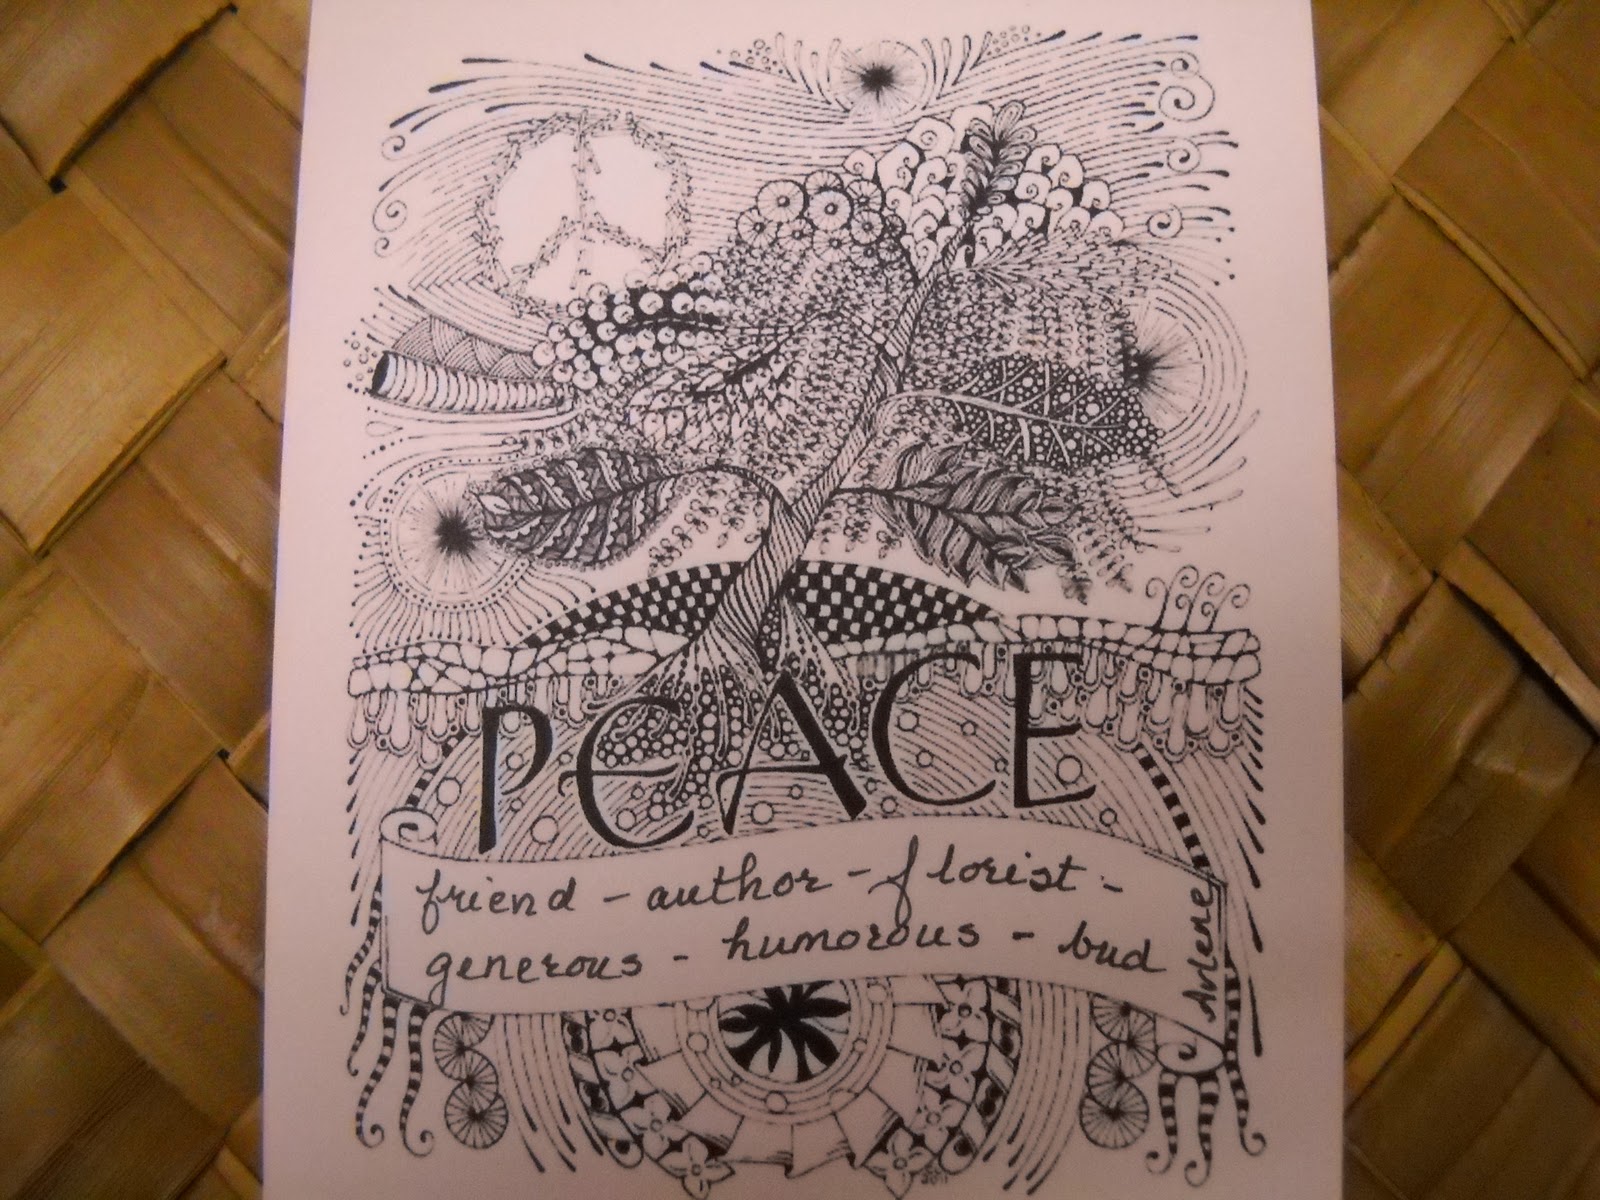 PEACE
friend - author - florist -
generous - humorous - bud
Arlene
2011